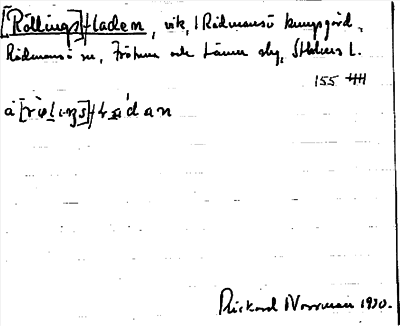 [Röllings]laden, vik, i Rådmansö kungsgård,
Rådmansö sn, Frötuna och Länna sky, Sthlms l.
155
Rickard Norrman 1930.